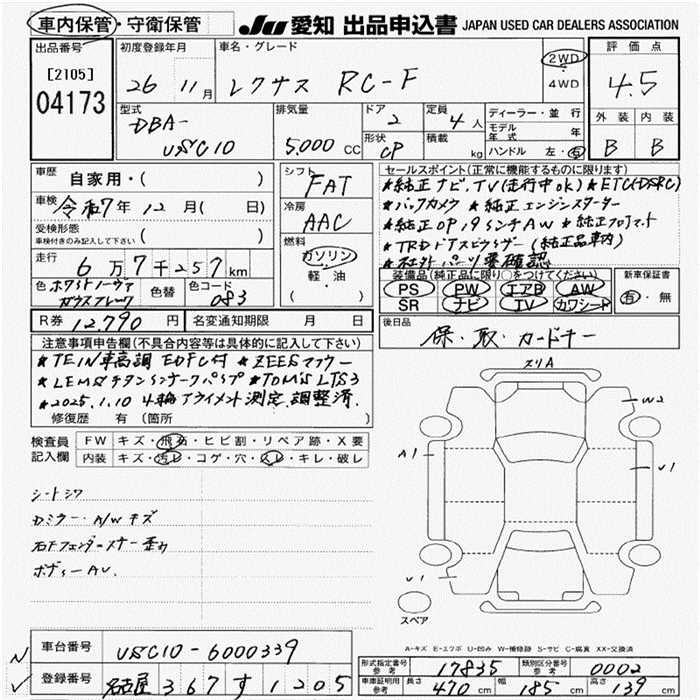 車内保管・守衛保管
JU 愛知 出品申込書 JAPAN USED CAR DEALERS ASSOCIATION
出品番号 [2105] 04173
初度登録年月 26 11月
車名・グレード レクサス RC-F
2WD・4WD
評価点 4.5
外装 B 内装 B
型式 DBA-USC10
排気量 5.000 CC
ドア 2
形状 CP
定員 4人
積載 kg
ディーラー・並行
モデル年式 年
ハンドル 左・右
車歴 自家用・( )
車検 令和7年12月( 日)
受検形態
車検付きのみ記入して下さい ( )
走行 6万7千257km
色 ホワイトノーヴァガラスフレーク
色替
色コード 083
シフト FAT
冷房 AAC
燃料 ガソリン・軽・油
R券 12,790円
名変通知期限 月 日
セールスポイント(正常に機能するものに限ります)
*純正ナビ、TV(走行中OK) *ETC(DSRC)
*バックカメラ *純正エンジンスターター
*純正OP19インチAW *純正フロアマット
*TRDドアスビライザー(純正品車内)
*社外パーツ要確認
装備品(純正品に限り○をつけてください)
PS PW エアB AW
SR ナビ TV カワシート
新車保証書 有・無
後日品
保・取・カードキー
注意事項申告欄(不具合内容等は具体的に記入して下さい)
*TEIN車高調 EDFC付 *ZEESマフラー
*LEMSチタンセンターパイプ *TOM'S LTS3
*2025.1.10 4輪アライメント測定、調整済.
修復歴 有(箇所 )
検査員記入欄
FW キズ・飛石・ヒビ割・リペア跡・X要
内装 キズ・汚レ・コゲ・穴・スレ・キレ・破レ
シートシワ
Dミラー・A/Wキズ
右Fフェンダーステー歪み
ボディーAU.
スリA
W2
A1
U1
U1
スペア
A-キズ E-エクボ U-凹み W-補修跡 S-サビ C-腐蝕 XX-交換済
車台番号 USC10-6000339
登録番号 名古屋 367 す 1205
型式指定番号 参考 17835
類別区分番号 参考 0002
車庫証明用 参考 長さ 470cm 幅 185cm 高さ 139cm